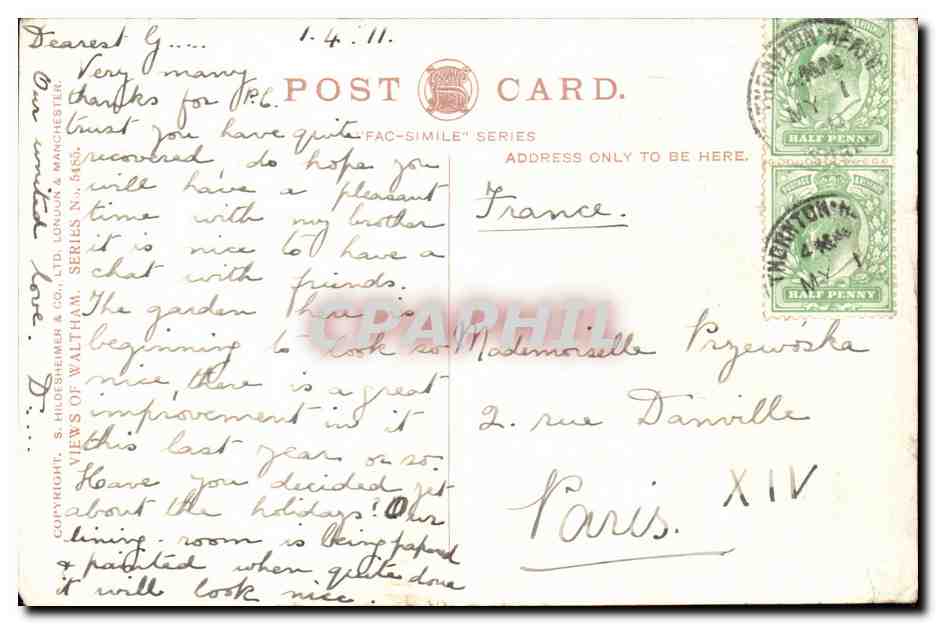 Dearest G.....
1.4.11.
Very many
thanks for P.C.
trust you have quite
recovered do hope you
will have a pleasant
time with my brother
it is nice to have a
chat with friends.
The garden here is
beginning to look so
nice, there is a great
improvement in it
this last year or so.
Have you decided yet
about the holidays? Our
dining-room is being papered
& painted when quite done
it will look nice.
Our united love. D.....
COPYRIGHT. S. HILDESHEIMER & CO., LTD. LONDON & MANCHESTER.
VIEWS OF WALTHAM. SERIES No. 5465.
POST CARD.
"FAC-SIMILE" SERIES
ADDRESS ONLY TO BE HERE.
France.
Mademoiselle Przewóska
2. rue Danville
Paris.
XIV
THORNTON·HEATH
MY 1
HALF PENNY
POSTAGE & REVENUE
THORNTON·H
MY 1
HALF PENNY
CPAPHIL